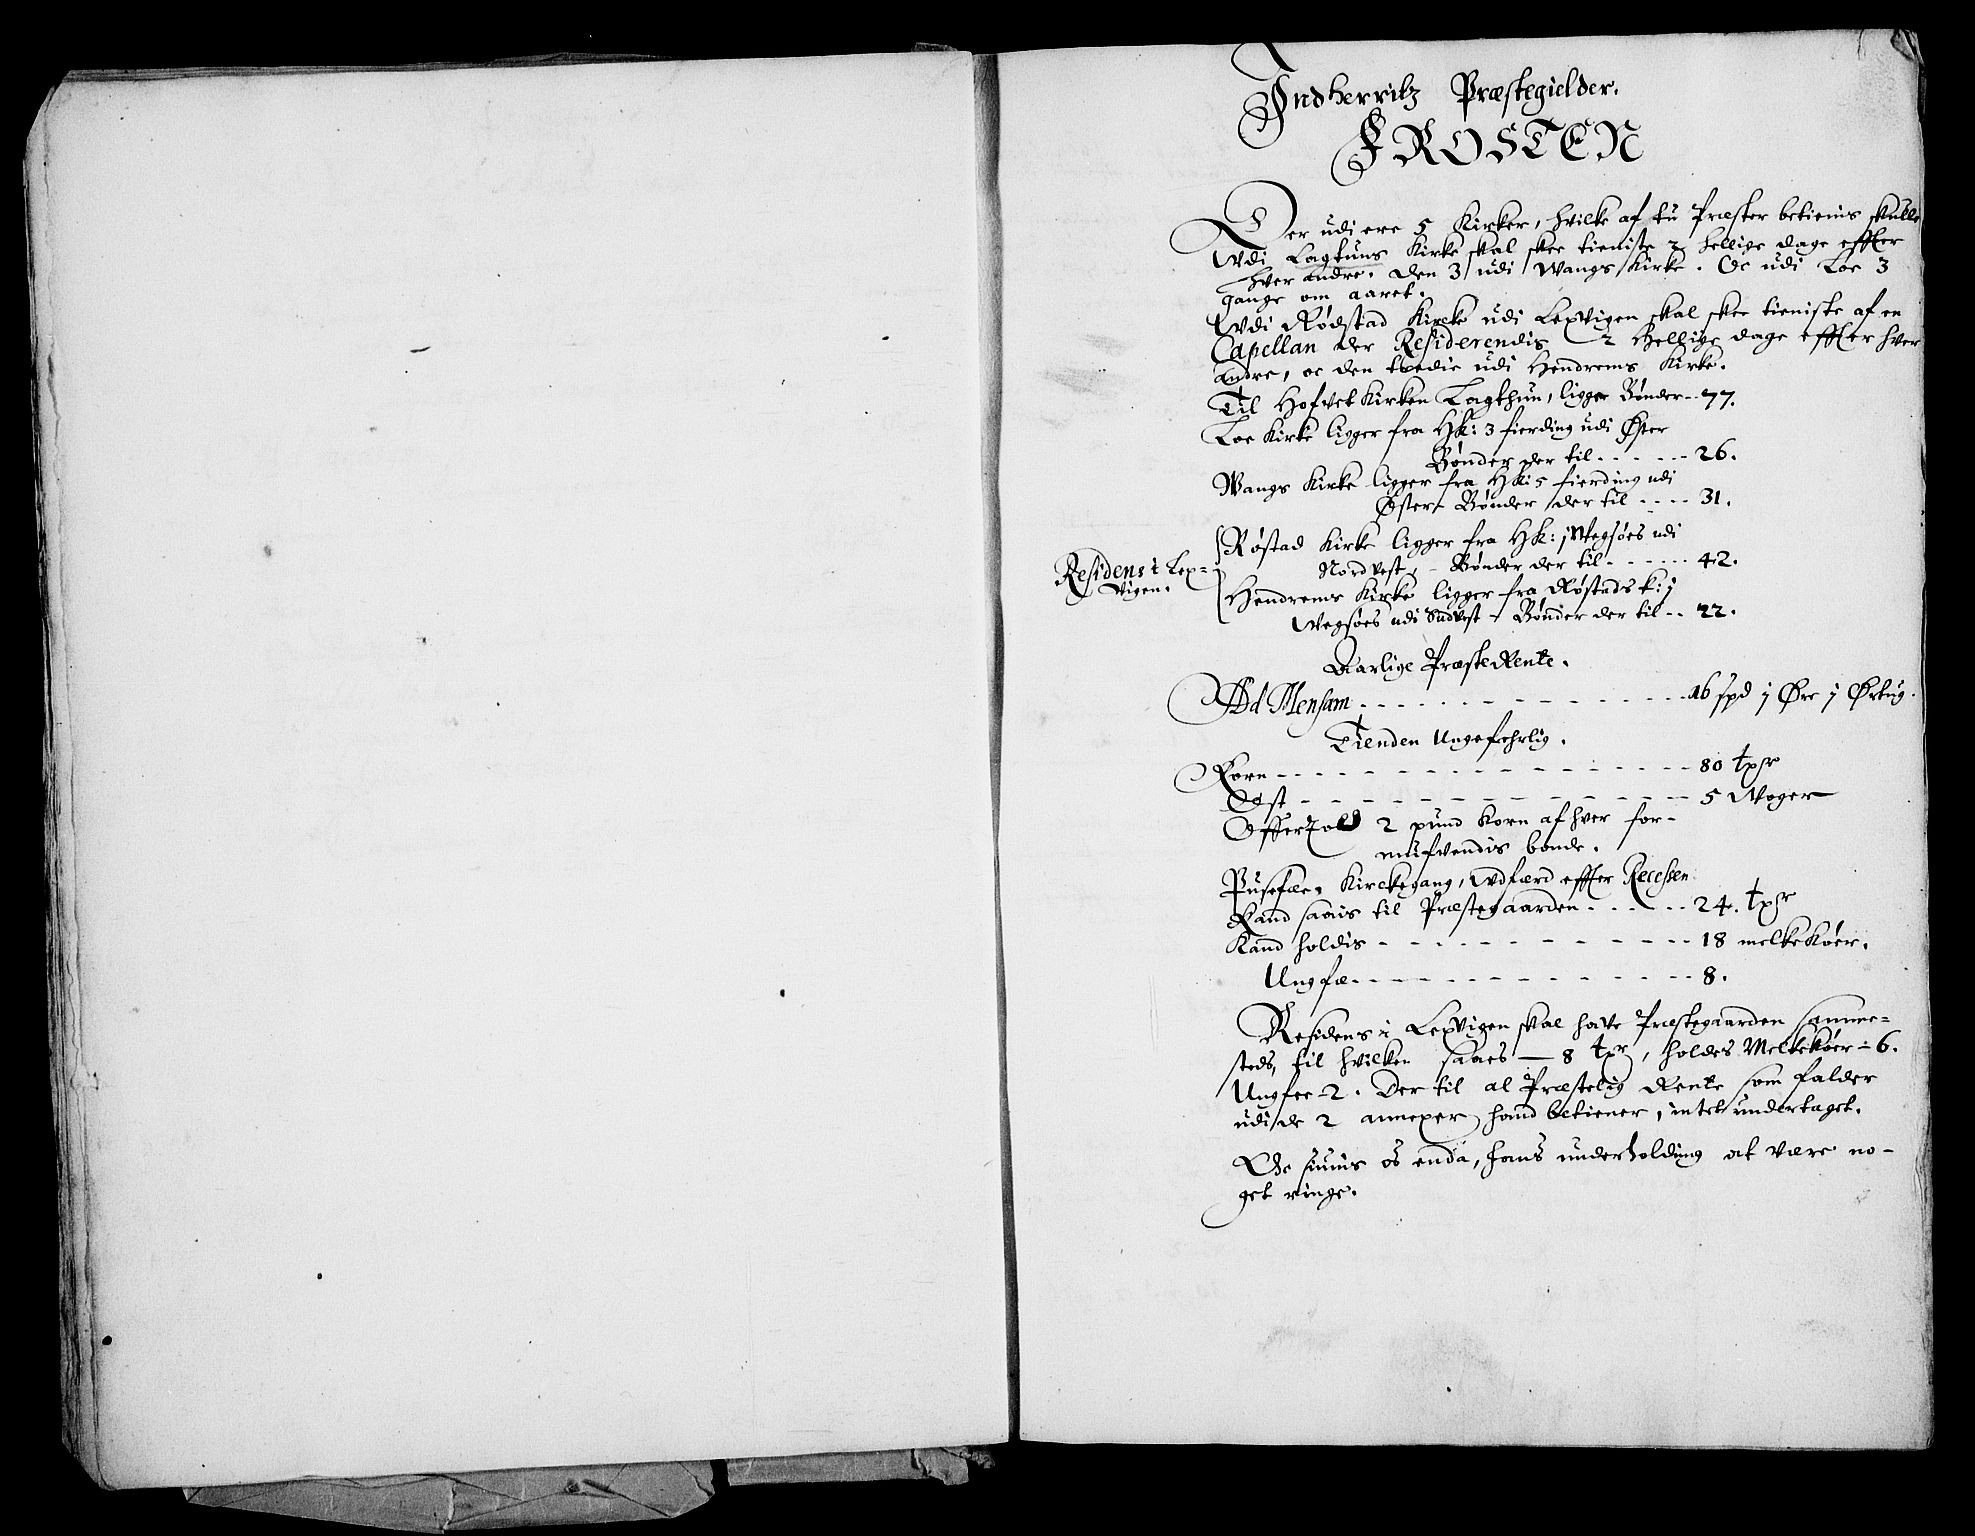 Indherritz Præstegielder.
FROSTEN
Der udi ere 5 Kirker, hvilke af tu Præster betienis skulle
Udi Lagtuns Kirke skal skee tieniste 2 hellige dage effter
hver andre. Den 3 udi Wangs Kirke. Oc udi Loe 3
gange om aaret.
Udi Rødstad Kircke udi Lexvigen skal skee tieniste af en
Capellan der Residerendis 2 Hellige dage effter hver
andre, oc den tredie udi Hendrems Kirke.
Til Hofvet Kirken Lagthun, ligger Bønder -- 77.
Loe Kirke ligger fra Hk: 3 fierding udi Øster
Bønder der til - - - - - 26.
Wangs Kirke ligger fra Hk: 5 fierding udi
Øster - Bønder der til - - - - 31.
Røstad Kirke ligger fra Hk: j Wegsøes udi
Nordvest, - Bønder der til - - - - - 42.
Residens i Lex=
vigen.
Hendrems Kirke ligger fra Røstads k: j
Wegsøes udi Sudvest - Bønder der til -- 22.
Aarlige Præste Rente.
Ad Mensam - - - - - - - - - - - 16 spd j Øre j Ørtug.
Tienden Ungefehrlig.
Korn - - - - - - - - - - - - - - 80 tpr
Ost - - - - - - - - - - - - - - 5 Woger
Offertold 2 pund Korn af hver for-
mufvendis bonde.
Pusefæe, Kirckegang, Udfærd effter Recessen
Kand saais til Præstegaarden - - - - - 24. tpr
Kand holdis - - - - - - - - - - - 18 melkekøer.
Ungfæ - - - - - - - - - - - - 8.
Residens i Lexvigen skal have Præstegaarden samme=
steds, til hvilken saaes — 8 tpr, holdes Melkekøer - 6.
Ungfee - 2. Der til al Præstelig Rente som falder
udi de 2 annexer hand betiener, intet undertaget.
Oc siunis os enda, hans underholding at være no-
get ringe.